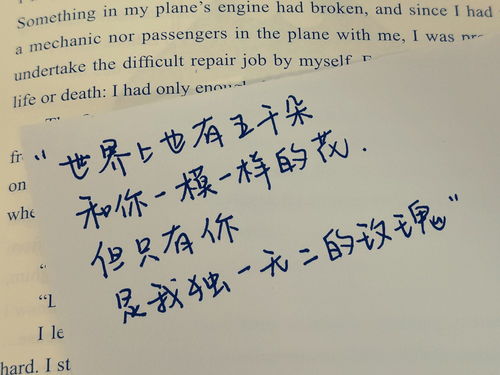 Something in my plane's engine had broken, and since I had
a mechanic nor passengers in the plane with me, I was
undertake the difficult repair job by myself.
life or death: I had only
fr
on
whe
"世界上也有五千朵
和你一模一样的花.
但只有你
是我独一无二的玫瑰"
"
"L
I le
hard. I st